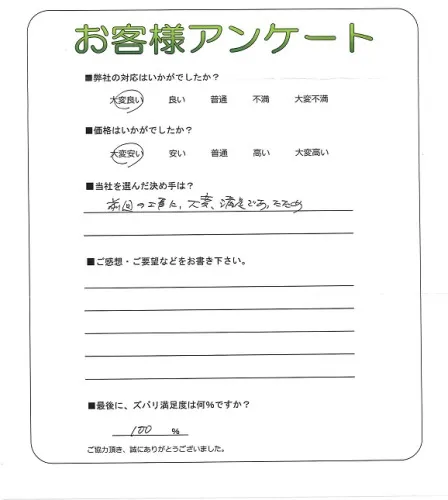 お客様アンケート
■弊社の対応はいかがでしたか？
大変良い 良い 普通 不満 大変不満
■価格はいかがでしたか？
大変安い 安い 普通 高い 大変高い
■当社を選んだ決め手は？
前回の工事に、大変、満足であったため
■ご感想・ご要望などをお書き下さい。
■最後に、ズバリ満足度は何%ですか？
100 %
ご協力頂き、誠にありがとうございました。